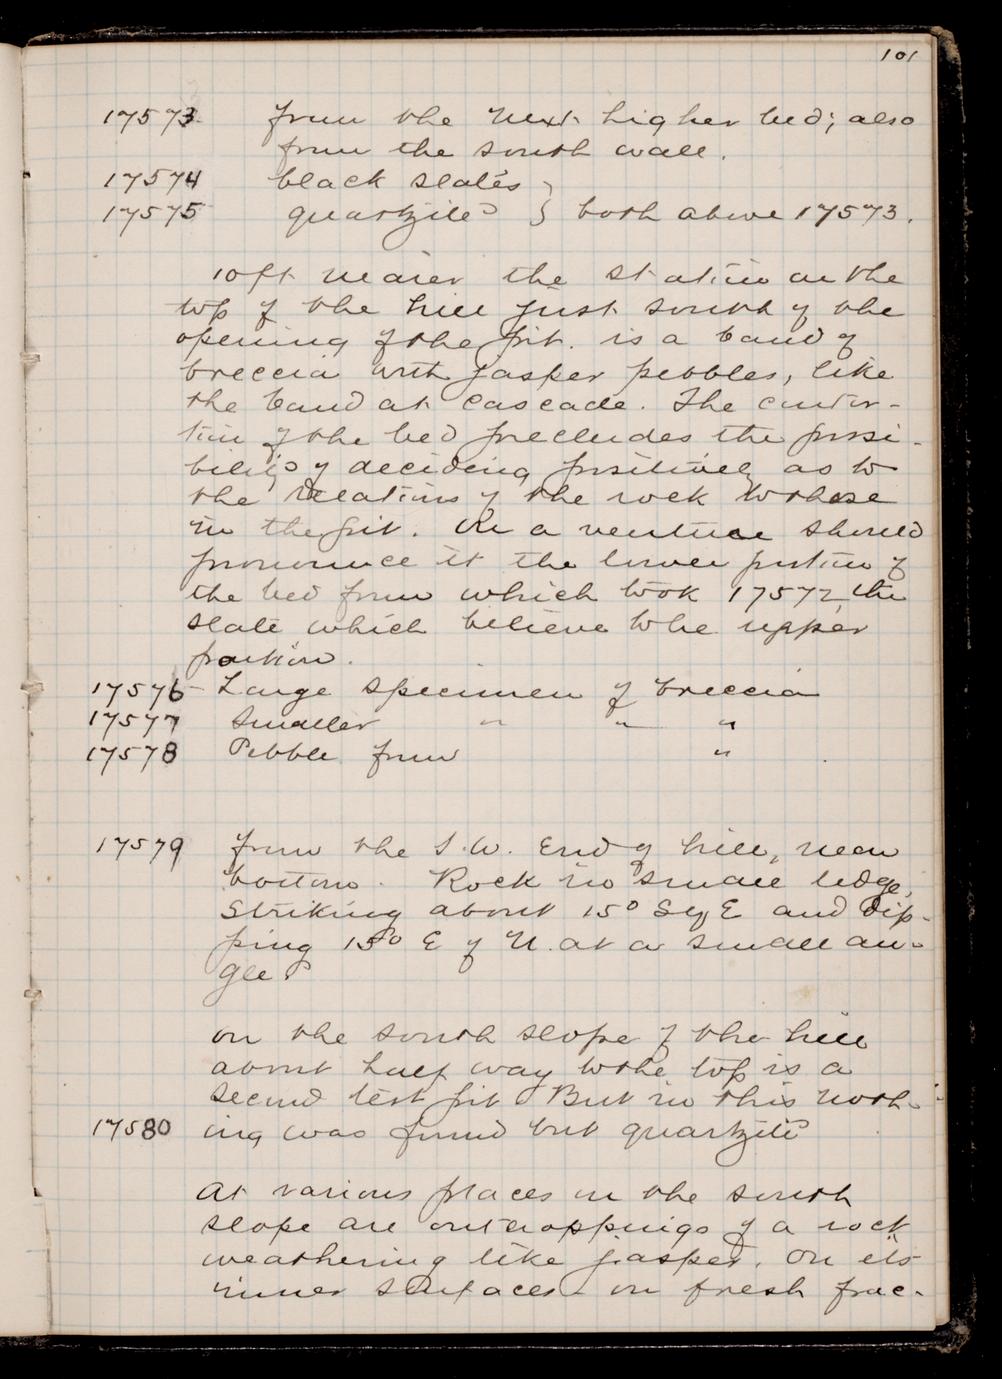 101
17573 from the next higher bed; also
from the south wall.
17574 black slates }
17575 quartzite } both above 17573.
10 ft nearer the station on the
top of the hill just south of the
opening of the pit. is a band of
breccia with jasper pebbles, like
the band at Cascade. The contor-
tion of the bed precludes the possi-
bility of deciding positively as to
the relations of the rock to those
in the pit. On a venture should
pronounce it the lower portion of
the bed from which took 17572, the
slate which believe to be upper
portion.
17576 - Large specimen of breccia
17577 Smaller " " "
17578 Pebble from "
17579 from the S.W. End of hill, near
bottom. Rock in small ledge,
Striking about 15° S of E and dip-
ping 15° E of N. at a small an-
gle
on the south slope of the hill
about half way to the top is a
second test pit But in this noth-
17580 ing was found but quartzite
At various places on the south
slope are outcroppings of a rock
weathering like jasper. On its
inner surfaces on fresh frac-